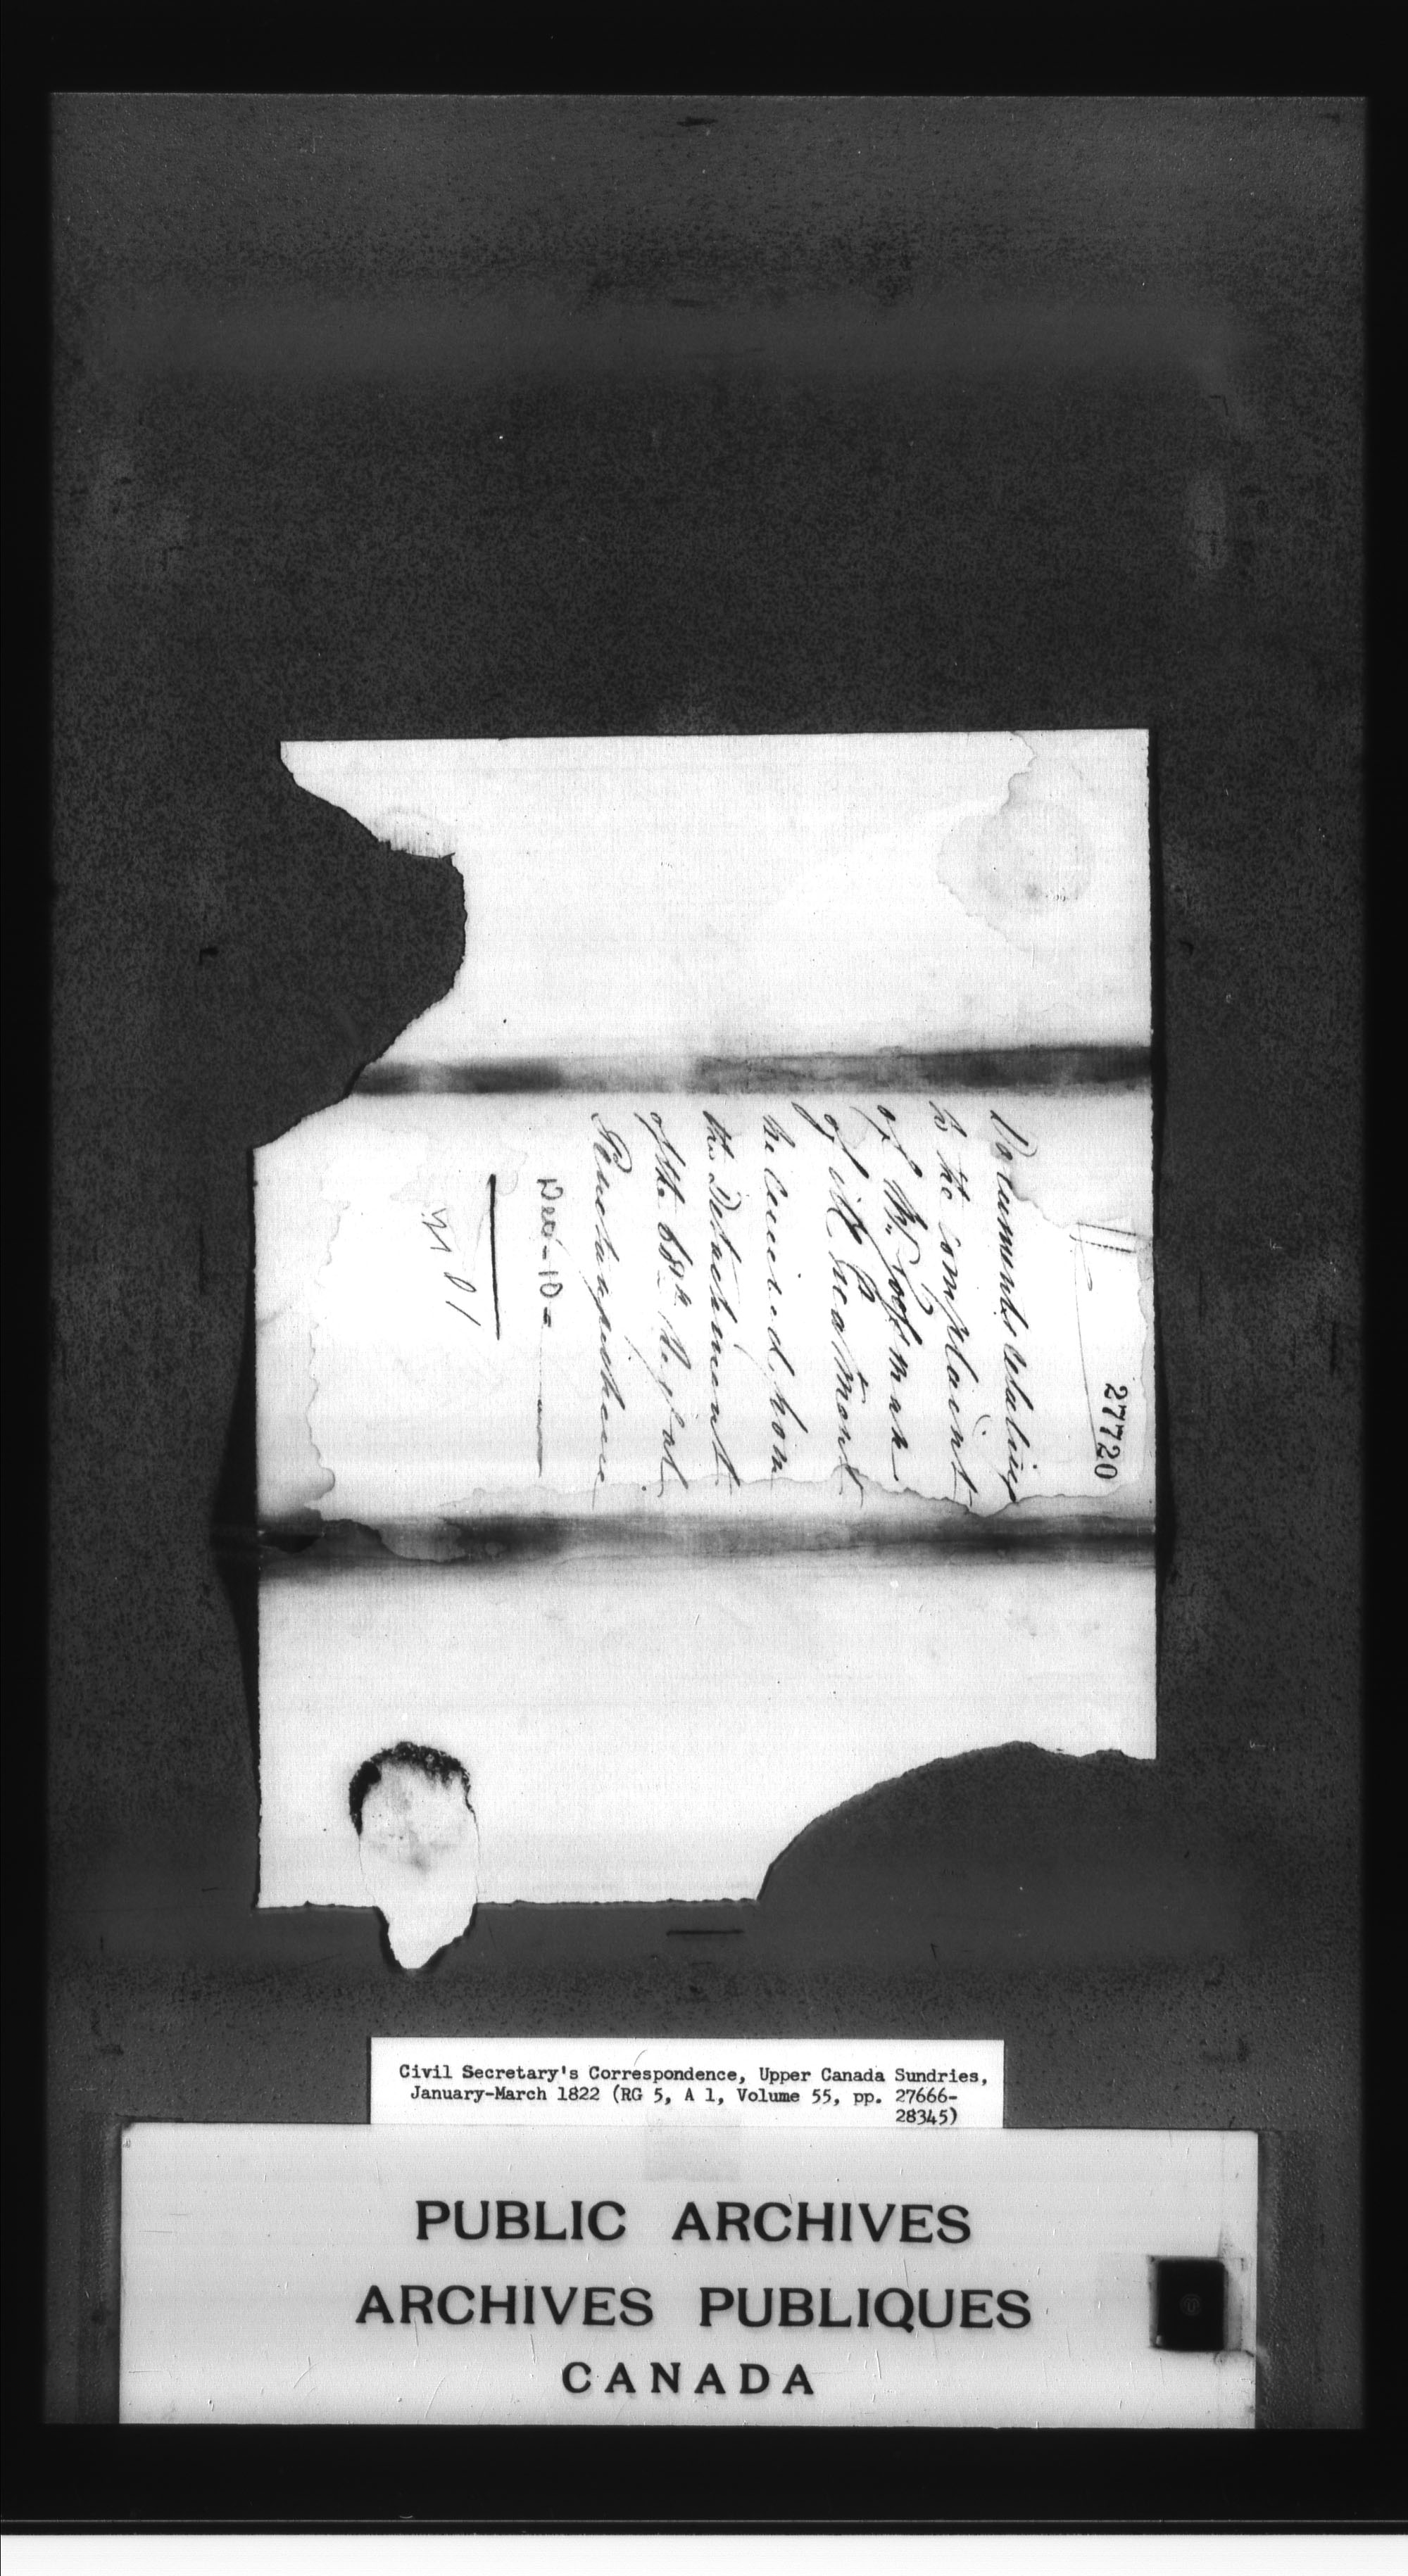 27720
Documents relating
to the complaint
of Mr. Hoffman
of ill treatment
received from
the Detachment
of the 68th Regt at
Penetanguishene
Civil Secretary's Correspondence, Upper Canada Sundries,
January-March 1822 (RG 5, A 1, Volume 55, pp. 27666-
28345)
PUBLIC ARCHIVES
ARCHIVES PUBLIQUES
CANADA